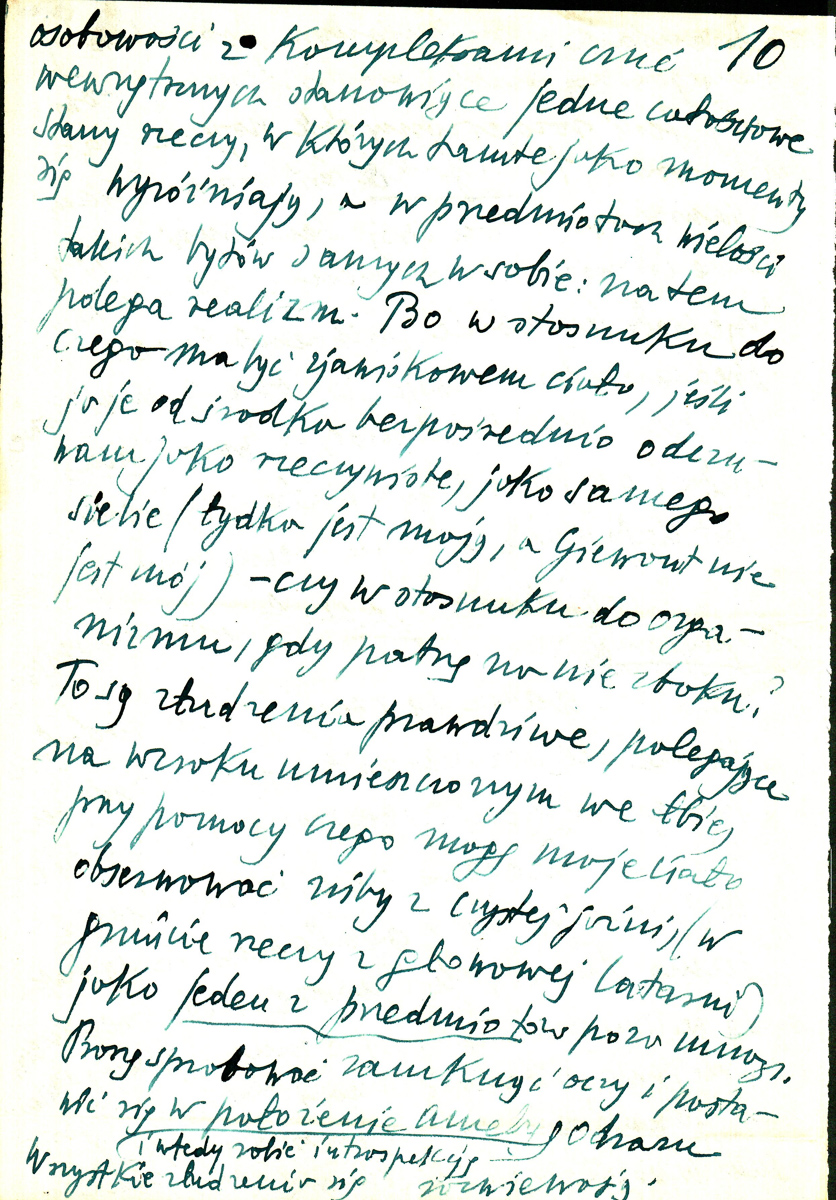 osobowości z kompleksami czuć 10
wewnętrznych stanowiące jedne całościowe
stany rzeczy, w których tamte jako momenty
się wyróżniają, a w przedmiotach wielości
takich bytów samych w sobie: na tem
polega realizm. Bo w stosunku do
czego ma być zjawiskowem ciało, jeśli
ja je od środka bezpośrednio odczu-
wam jako rzeczywiste, jako samego
siebie (łydka jest moją, a Giewont nie
jest mój) – czy w stosunku do orga-
nizmu, gdy patrzę na nie z boku?
To są złudzenia prawdziwe, polegające
na wzroku umieszczonym we łbie,
przy pomocy czego mogę moje ciało
obserwować niby z czystej jaźni, (w
gruncie rzeczy z głowowej latarni)
jako jeden z przedmiotów poza mną.
Proszę spróbować zamknąć oczy i posta-
wić się w położenie ameby
i wtedy robić introspekcję
Wszystkie złudzenia się rozwiewają.